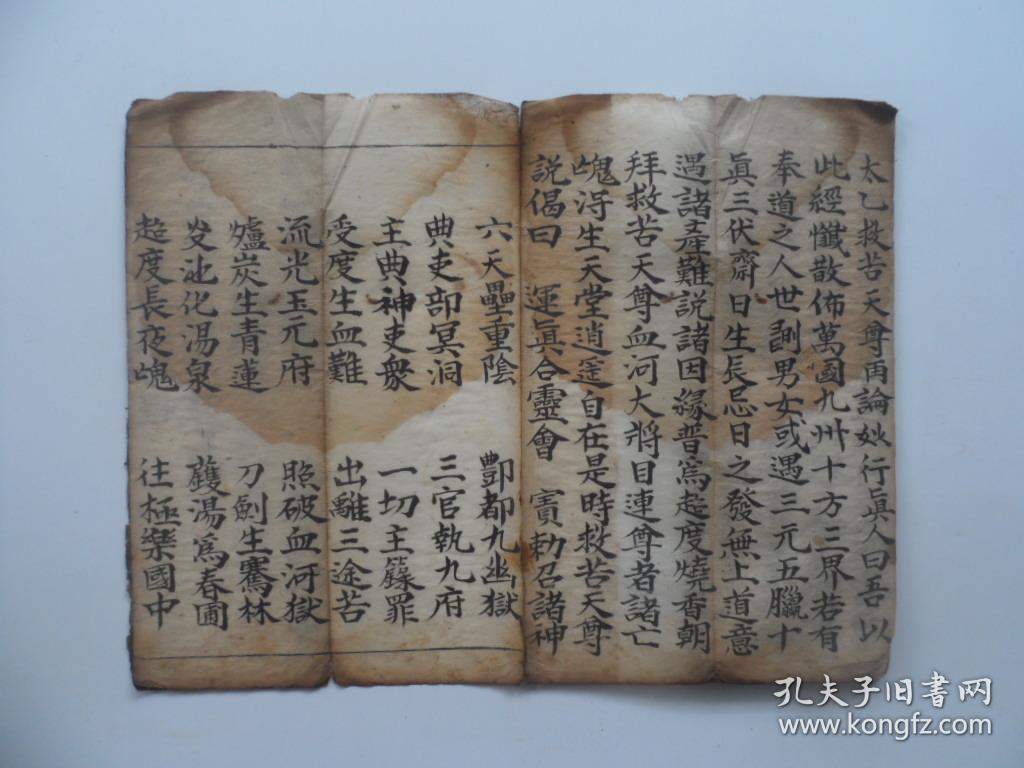 太乙救苦天尊再論妙行眞人曰吾以
此經懺散佈萬國九州十方三界若有
奉道之人世間男女或遇三元五臘十
眞三伏齋日生辰忌日之發無上道意
遇諸產難説諸因緣普爲起度燒香朝
拜救苦天尊血河大將目連尊者諸亡
魂淂生天堂逍遥自在是時救苦天尊
説偈曰 運眞合靈會 寳勅召諸神
六天壘重陰 酆都九幽獄
典吏部冥洞 三官執九府
主典神吏衆 一切主籙罪
受度生血難 出離三途苦
流光玉元府 照破血河獄
爐炭生青蓮 刀劍生騫林
火池化湯泉 鑊湯爲春圃
起度長夜魂 往極樂國中
孔夫子旧書网
www.kongfz.com